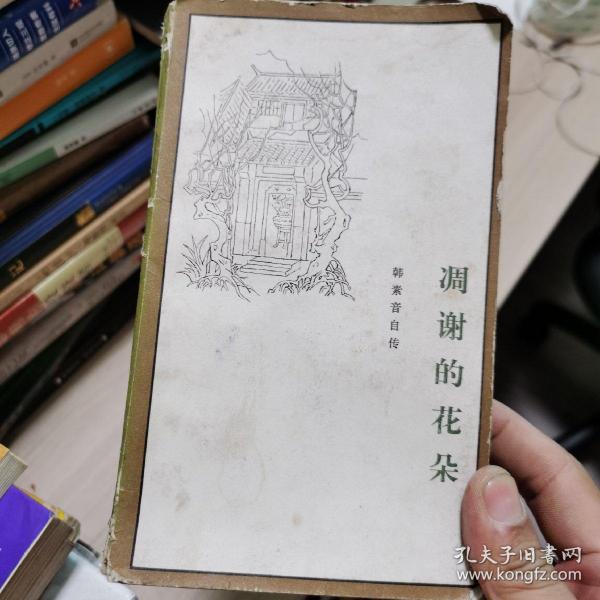 凋谢的花朵
韩素音自传
孔夫子旧书网
www.kongfz.com